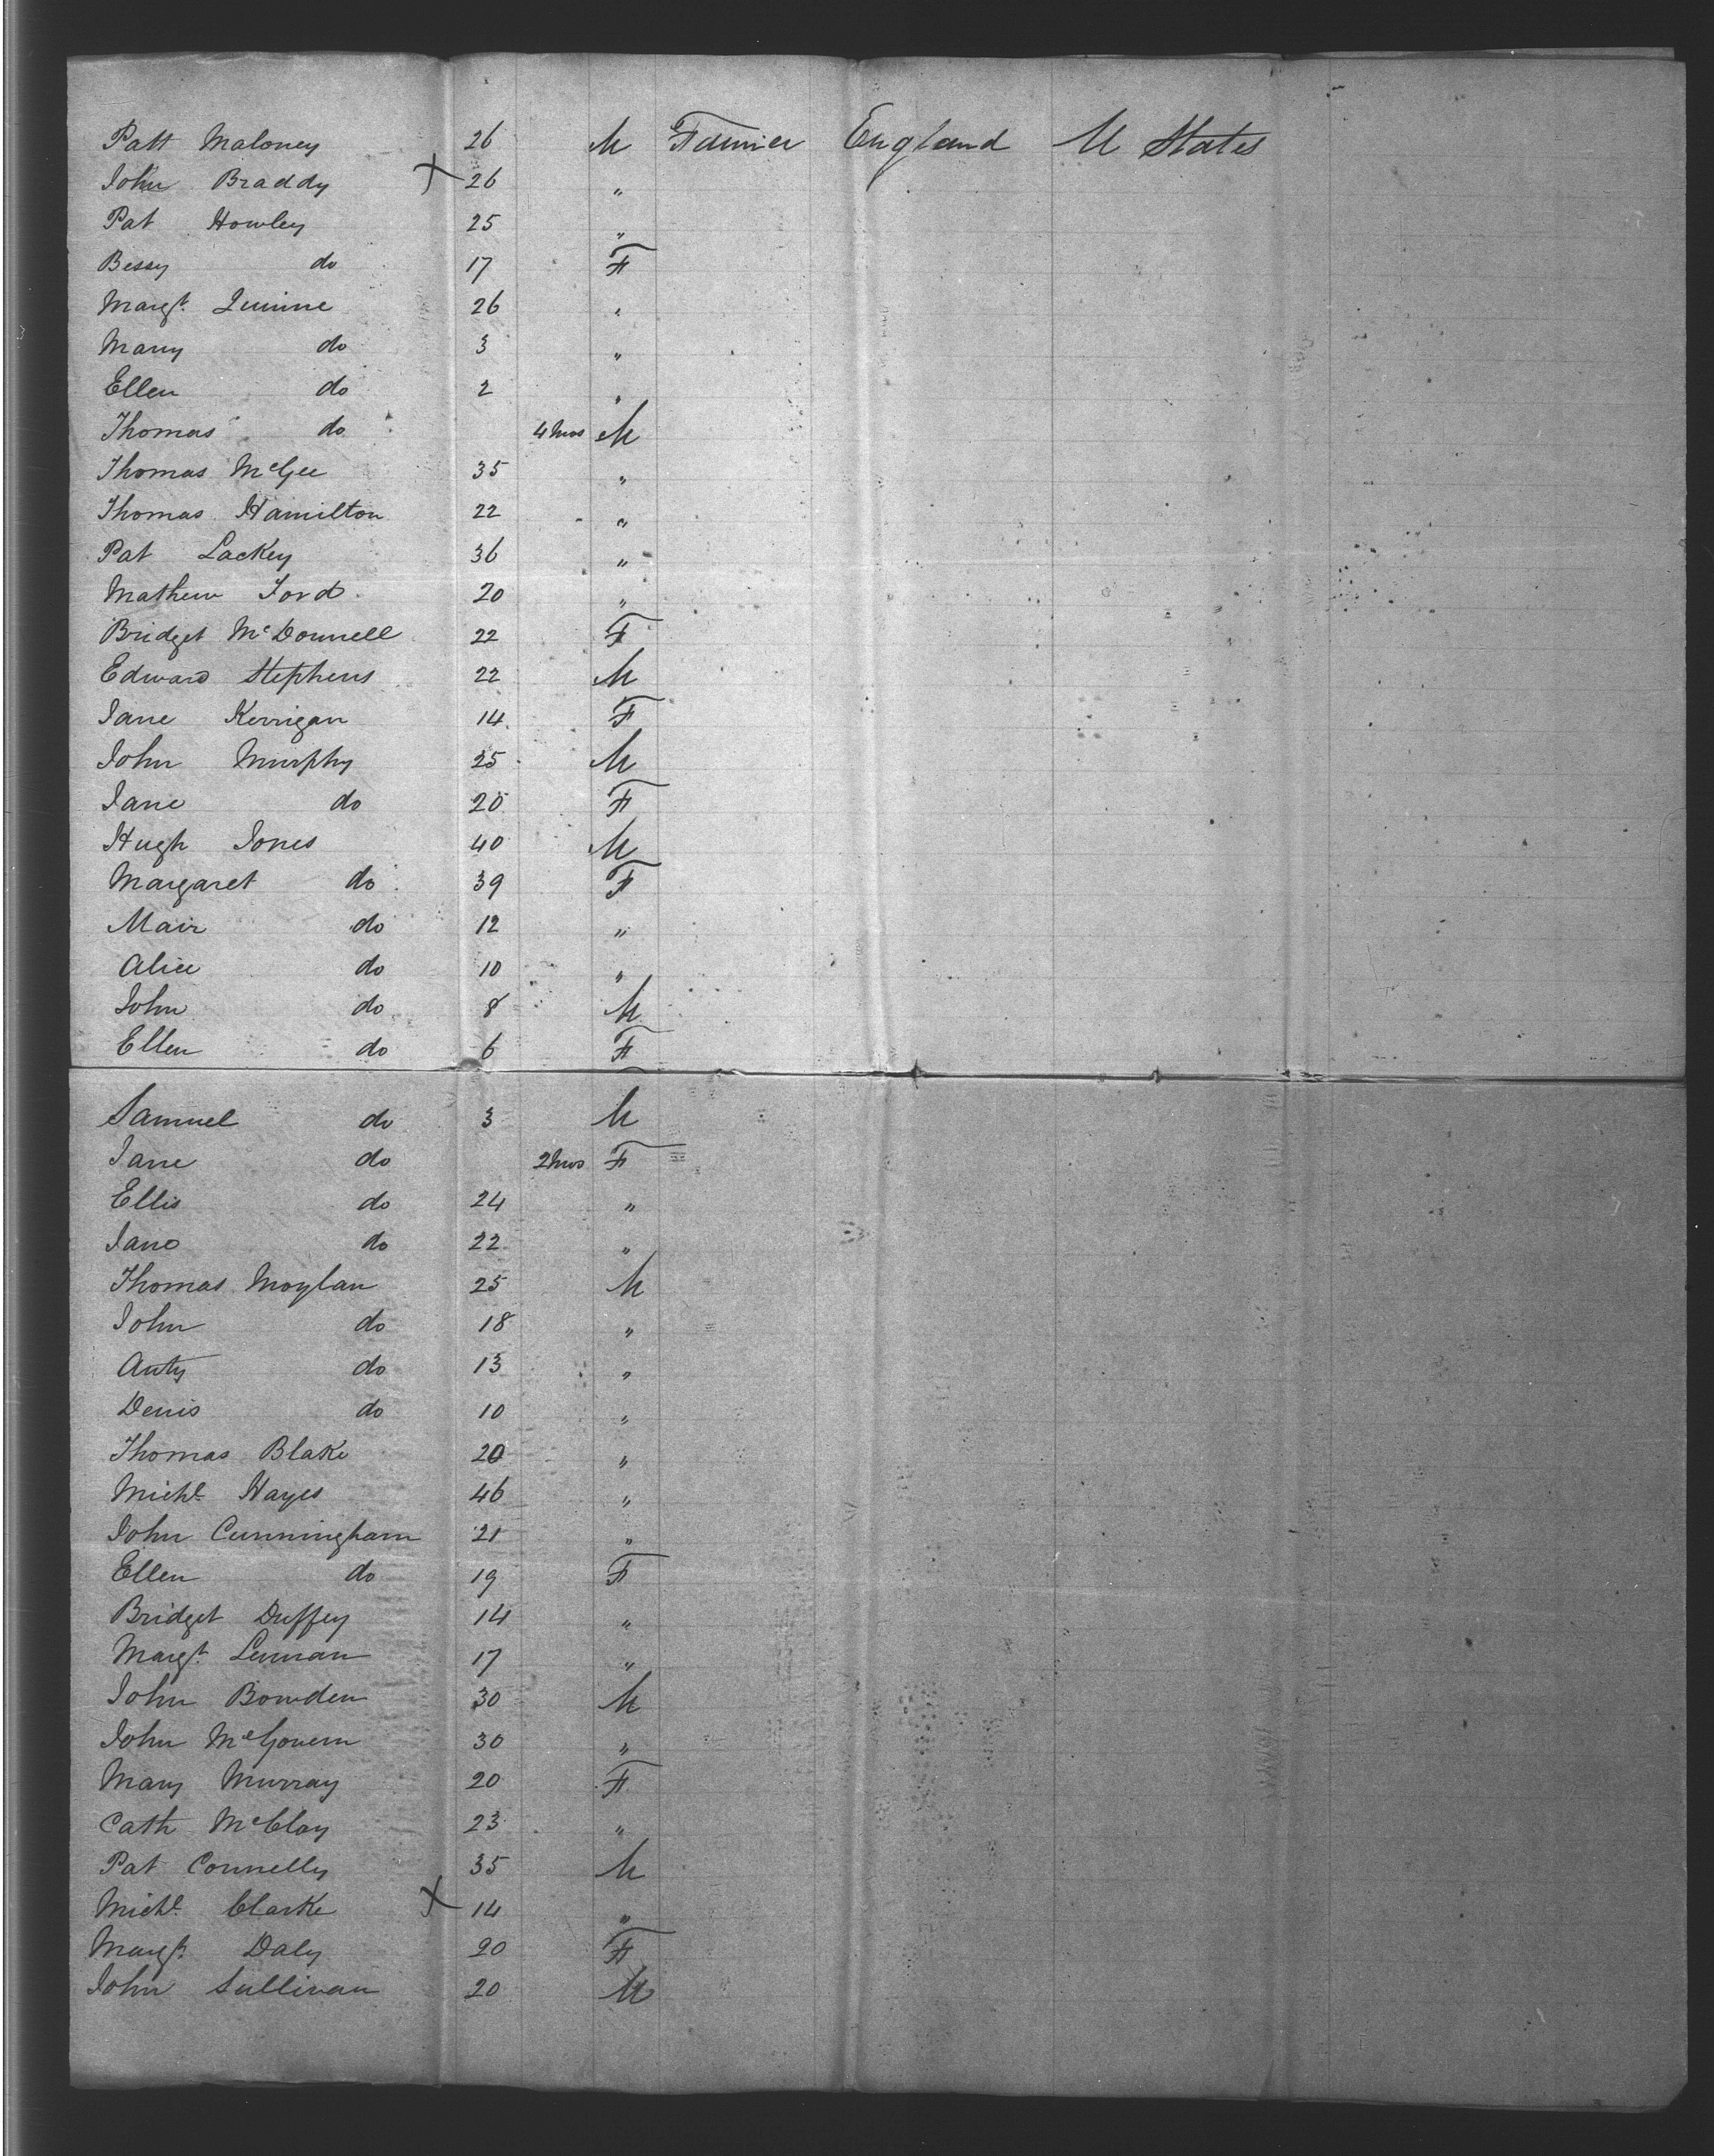 Patt Maloney 26 M Farmer England U States
John Braddy X 26 "
Pat Howley 25 "
Bessy do 17 F
Margt. Quinne 26 "
Mary do 3 "
Ellen do 2 "
Thomas do 4 mos M
Thomas McGee 35 "
Thomas Hamilton 22 "
Pat Lackey 36 "
Mathew Ford 20 "
Bridget McDonnell 22 F
Edward Stephens 22 M
Jane Kerrigan 14 F
John Murphy 25 M
Jane do 20 F
Hugh Jones 40 M
Margaret do 39 F
Mair do 12 "
Alice do 10 "
John do 8 M
Ellen do 6 F
Samuel do 3 M
Jane do 2 mos F
Ellis do 24 "
Jane do 22 "
Thomas Moylan 25 M
John do 18 "
Anty do 13 "
Denis do 10 "
Thomas Blake 20 "
Michl. Hayes 46 "
John Cunningham 21 "
Ellen do 19 F
Bridget Duffey 14 "
Margt. Lennan 17 "
John Bowden 30 M
John McGovern 30 "
Mary Murray 20 F
Cath McClay 23 "
Pat Connelly 35 M
Michl. Clarke X 14 "
Margt. Daly 20 F
John Sullivan 20 M